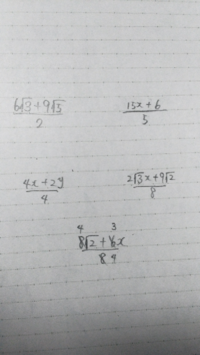 (6√3+9√3)/2 (15x+6)/5
(4x+2y)/4 (2√3x+9√2)/8
4 3
(8√2+6x)/8 4